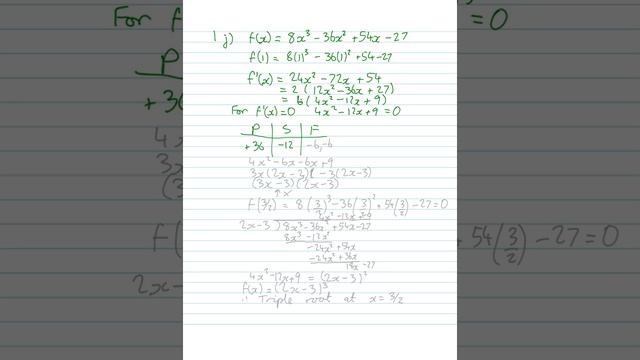 1 j) f(x) = 8x³ - 36x² + 54x - 27
f(1) = 8(1)³ - 36(1)² + 54 - 27
f'(x) = 24x² - 72x + 54
= 2 (12x² - 36x + 27)
= 6 (4x² - 12x + 9)
For f'(x) = 0 4x² - 12x + 9 = 0
P | S | F
+36 | -12 | -6,-6
4x² - 6x - 6x + 9
3x(2x - 3) - 3(2x - 3)
(3x - 3)(2x - 3)
↑ x
f(3/2) = 8(3/2)³ - 36(3/2)² + 54(3/2) - 27 = 0
4x² - 12x + 9
2x - 3 ) 8x³ - 36x² + 54x - 27
8x³ - 12x²
-24x² + 54x
-24x² + 36x
18x - 27
4x² - 12x + 9 = (2x - 3)²
f(x) = (2x - 3)³
∴ Triple root at x = 3/2